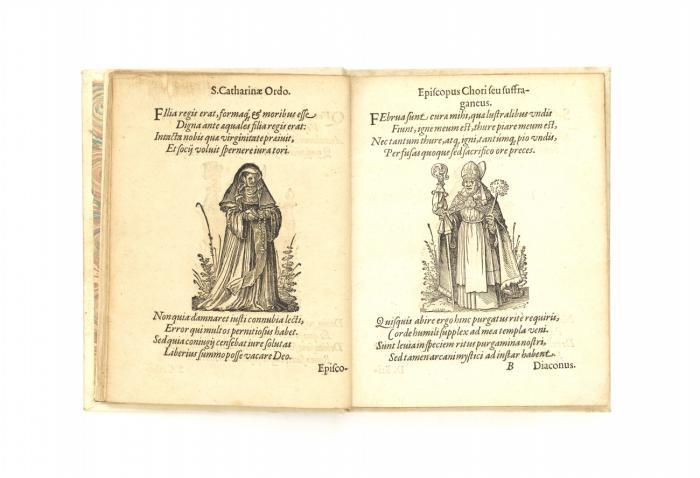 S. Catharinæ Ordo.
FIlia regis erat, formaq́, & moribus esse
Digna ante æquales filia regis erat:
Intacta nobis quæ virginitate præiuit,
Et socij voluit spernere iura tori.
Non quia damnaret iusti connubia lecti,
Error qui multos pernitiosus habet.
Sed quia coniugij censebat iure solutas
Laberius summo posse vacare Deo.
Episco-
Episcopus Chori seu suffra-
ganeus.
FEbrua sunt cura mihi, qua lustralibus vndis
Fiunt, igne meum est, thure piare meum est,
Nec tantum thure, atq́, igni, tantumq́ pio vndis,
Perfusas quoque sed sacrifico ore preces.
Quisquis abire ergo hinc purgatus ritè requiris,
Corde humili supplex ad mea templa veni.
Sunt leuia in speciem ritus purgamina nostri,
Sed tamen arcani mystici ad instar habent.
B Diaconus.